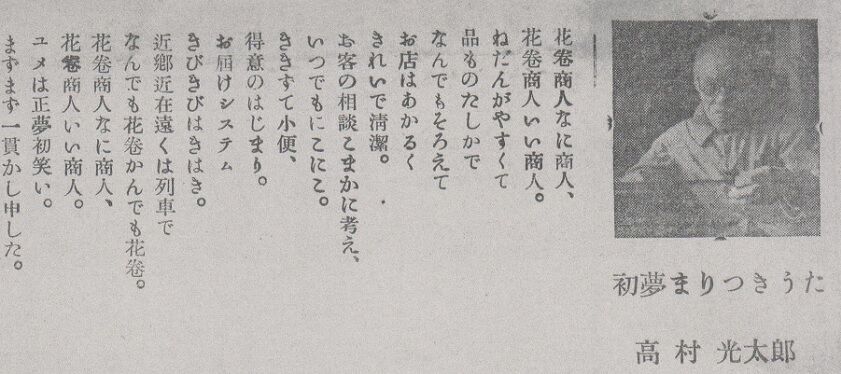 初夢まりつきうた
高村光太郎
花巻商人なに商人、
花巻商人いい商人。
ねだんがやすくて
品ものたしかで
なんでもそろえて
お店はあかるく
きれいで清潔。
お客の相談こまかに考え、
いつでもにこにこ。
ききすて小便、
得意のはじまり。
お届けシステム
きびきびはきはき。
近郷近在遠くは列車で
なんでも花巻かんでも花巻。
花巻商人なに商人、
花巻商人いい商人。
ユメは正夢初笑い。
まずまず一貫かし申した。